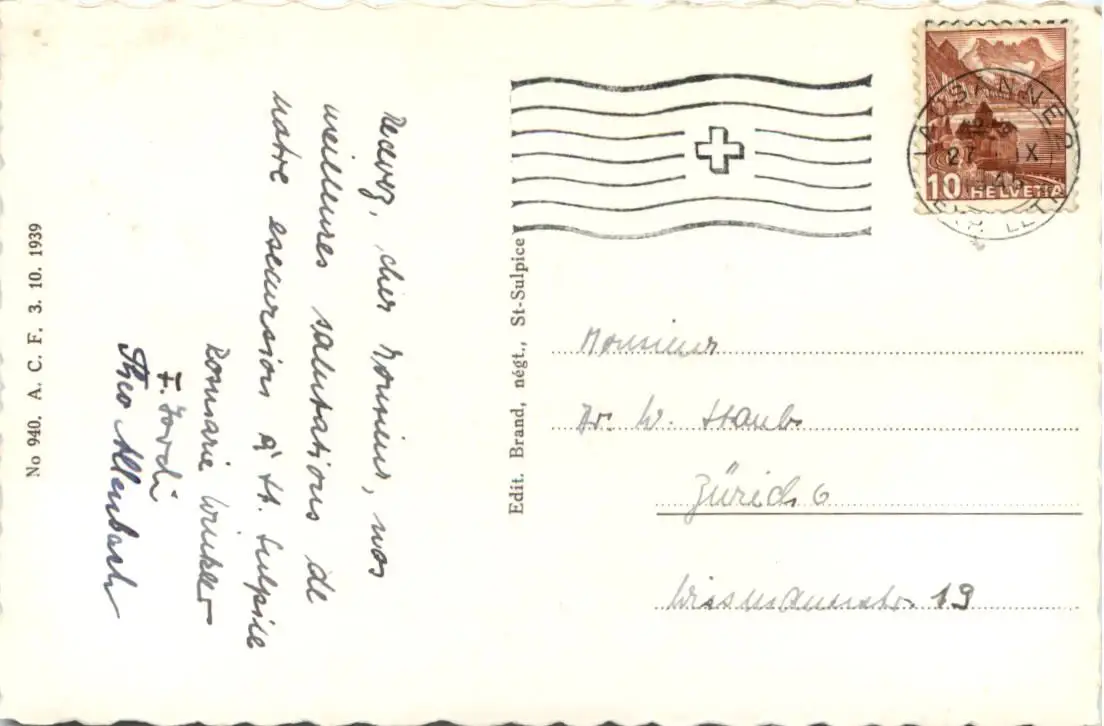 No 940. A. C. F. 3. 10. 1939
cher Monsieur, nos
meilleures salutations de
notre escursion à St. Sulpice
Rosmarie Winkler
F. Jordi
Theo Allenbach
Edit. Brand, négt., St-Sulpice
LAUSANNE
27 IX
10 HELVETIA
Monsieur
Dr. W. Staub
Zürich 6
19